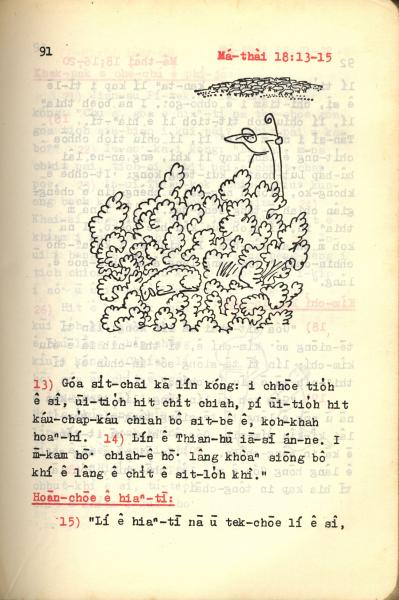 91
Má-thài 18:13-15
13) Góa si̍t-chāi kā lín kóng: i chhōe tio̍h
ê sî, ūi-tio̍h hit chi̍t chiah, pí ūi-tio̍h hit
káu-cha̍p-káu chiah bô sit-bê ê, koh-khah
hoaⁿ-hí. 14) Lín ê Thian-hū iā-sī án-ne. I
m̄-kam hō͘ chiah-ê hō͘ lâng khòaⁿ siōng bô
khí ê lâng ê chi̍t ê sit-lo̍h khì."
Hoān-chōe ê hiaⁿ-tī:
15) "Lí ê hiaⁿ-tī nā ū tek-chōe lí ê sî,